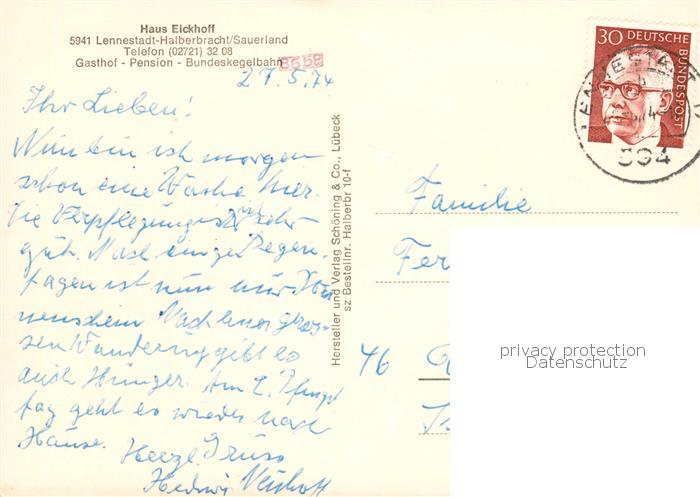 Haus Eickhoff
5941 Lennestadt-Halberbracht/Sauerland
Telefon (02721) 32 08
Gasthof - Pension - Bundeskegelbahn
8559
27.5.74
Ihr Lieben!
Nun bin ich morgen
schon eine Woche hier.
Die Verpflegung ist sehr
gut. Nach einigen Regen-
tagen ist nun nur Son
nenschein. Nach einer gros-
sen Wanderung gibt es
auch Hunger. Am 2. Pfingst
tag geht es wieder nach
Hause.
Herzl. Gruss
Hersteller und Verlag Schöning & Co., Lübeck
sz Bestellnr. Halberbr 10-f
30 DEUTSCHE
BUNDESPOST
594
Familie
Fer
46
privacy protection
Datenschutz